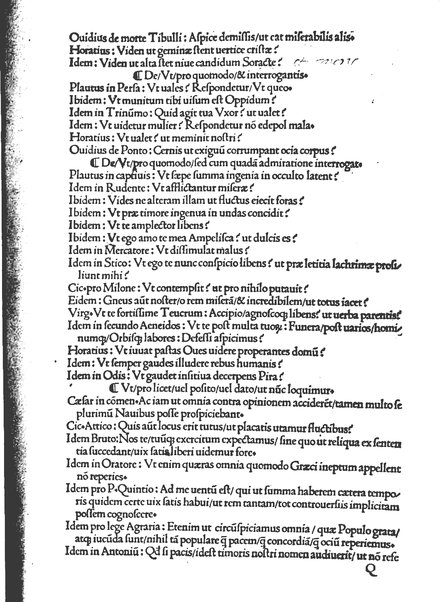 Ouidius de morte Tibulli: Aspice demissis/ut eat miserabilis alis.
Horatius: Viden ut geminæ stent uertice cristæ?
Idem: Viden ut alta stet niue candidum Soracte?
¶ De/Vt/pro quomodo/& interrogantis.
Plautus in Persa: Vt uales? Respondetur/Vt queo.
Ibidem: Vt munitum tibi uisum est Oppidum?
Idem in Trinūmo: Quid agit tua Vxor? ut ualet?
Idem: Vt uidetur mulier? Respondetur nō edepol mala.
Horatius: Vt ualet? ut meminit nostri?
Ouidius de Ponto: Cernis ut exiguū corrumpant ocia corpus?
¶ De/Vt/pro quomodo/sed cum quadā admiratione interrogat.
Plautus in captiuis: Vt sæpe summa ingenia in occulto latent?
Idem in Rudente: Vt afflictantur miseræ?
Ibidem: Vides ne alteram illam ut fluctus eiecit foras?
Ibidem: Vt præ timore ingenua in undas concidit?
Ibidem: Vt te amplector libens?
Ibidem: Vt ego amo te mea Ampelisca? ut dulcis es?
Idem in Mercatore: Vt dissimulat malus?
Idem in Stico: Vt ego te nunc conspicio libens? ut præ letitia lachrimæ prosi/
liunt mihi?
Cic.pro Milone: Vt contempsit? ut pro nihilo putauit?
Eidem: Gneus aūt noster/o rem miserā/& incredibilem/ut totus iacet?
Virg.Vt te fortissime Teucrum: Accipio/agnoscoq; libens? ut uerba parentis?
Idem in secundo Aeneidos: Vt te post multa tuoꝝ: Funera/post uarios/homi/
numq;/Orbisq; labores: Defessi aspicimus?
Horatius: Vt iuuat pastas Oues uidere properantes domū?
Idem: Vt semper gaudes illudere rebus humanis?
Idem in Odis: Vt gaudet insitiua decerpens Pira?
¶ Vt/pro licet/uel posito/uel dato/ut nūc loquimur.
Cæsar in cōmen.Ac iam ut omnia contra opinionem acciderēt/tamen multo se
plurimū Nauibus posse prospiciebant.
Cic.Attico: Quis aūt locus erit tutus/ut placatis utamur fluctibus?
Idem Bruto: Nos te/tuūq; exercitum expectamus/ sine quo ut reliqua ex senten
tia succedant/uix satis liberi uidemur fore.
Idem in Oratore: Vt enim quæras omnia quomodo Græci ineptum appellent
nō reperies.
Idem pro P.Quintio: Ad me uentū est/ qui ut summa haberem cætera tempo/
ris quidem certe uix satis habui/ut rem tantam/tot controuersiis implicitam
possem cognoscere.
Idem pro lege Agraria: Etenim ut circūspiciamus omnia / quæ Populo grata/
atq; iucūda sunt/nihil tā populare q̄ pacem/q̄ concordiā/q̄ ociū reperiemus.
Idem in Antoniū: Qđ si pacis/idest timoris nostri nomen audiuerit/ut nō refe
Q